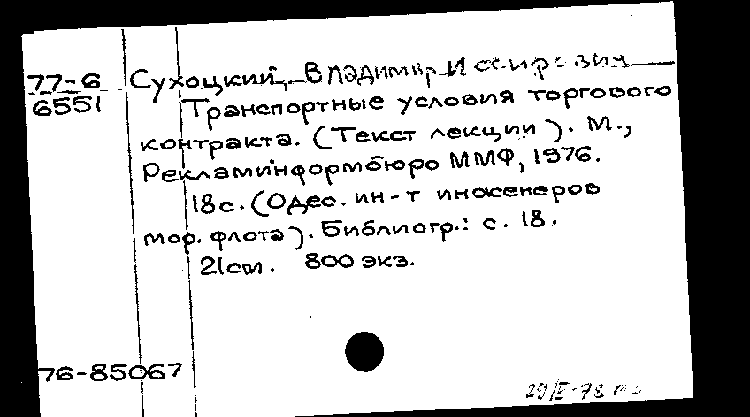 77-6 Сухоцкий, Владимир Иосифович
6551 Транспортные условия торгового
контракта. (Текст лекции). М.,
Рекламинформбюро ММФ, 1976.
18с. (Одес. ин-т инженеров
мор. флота). Библиогр.: с. 18.
21см. 800 экз.
76-85067